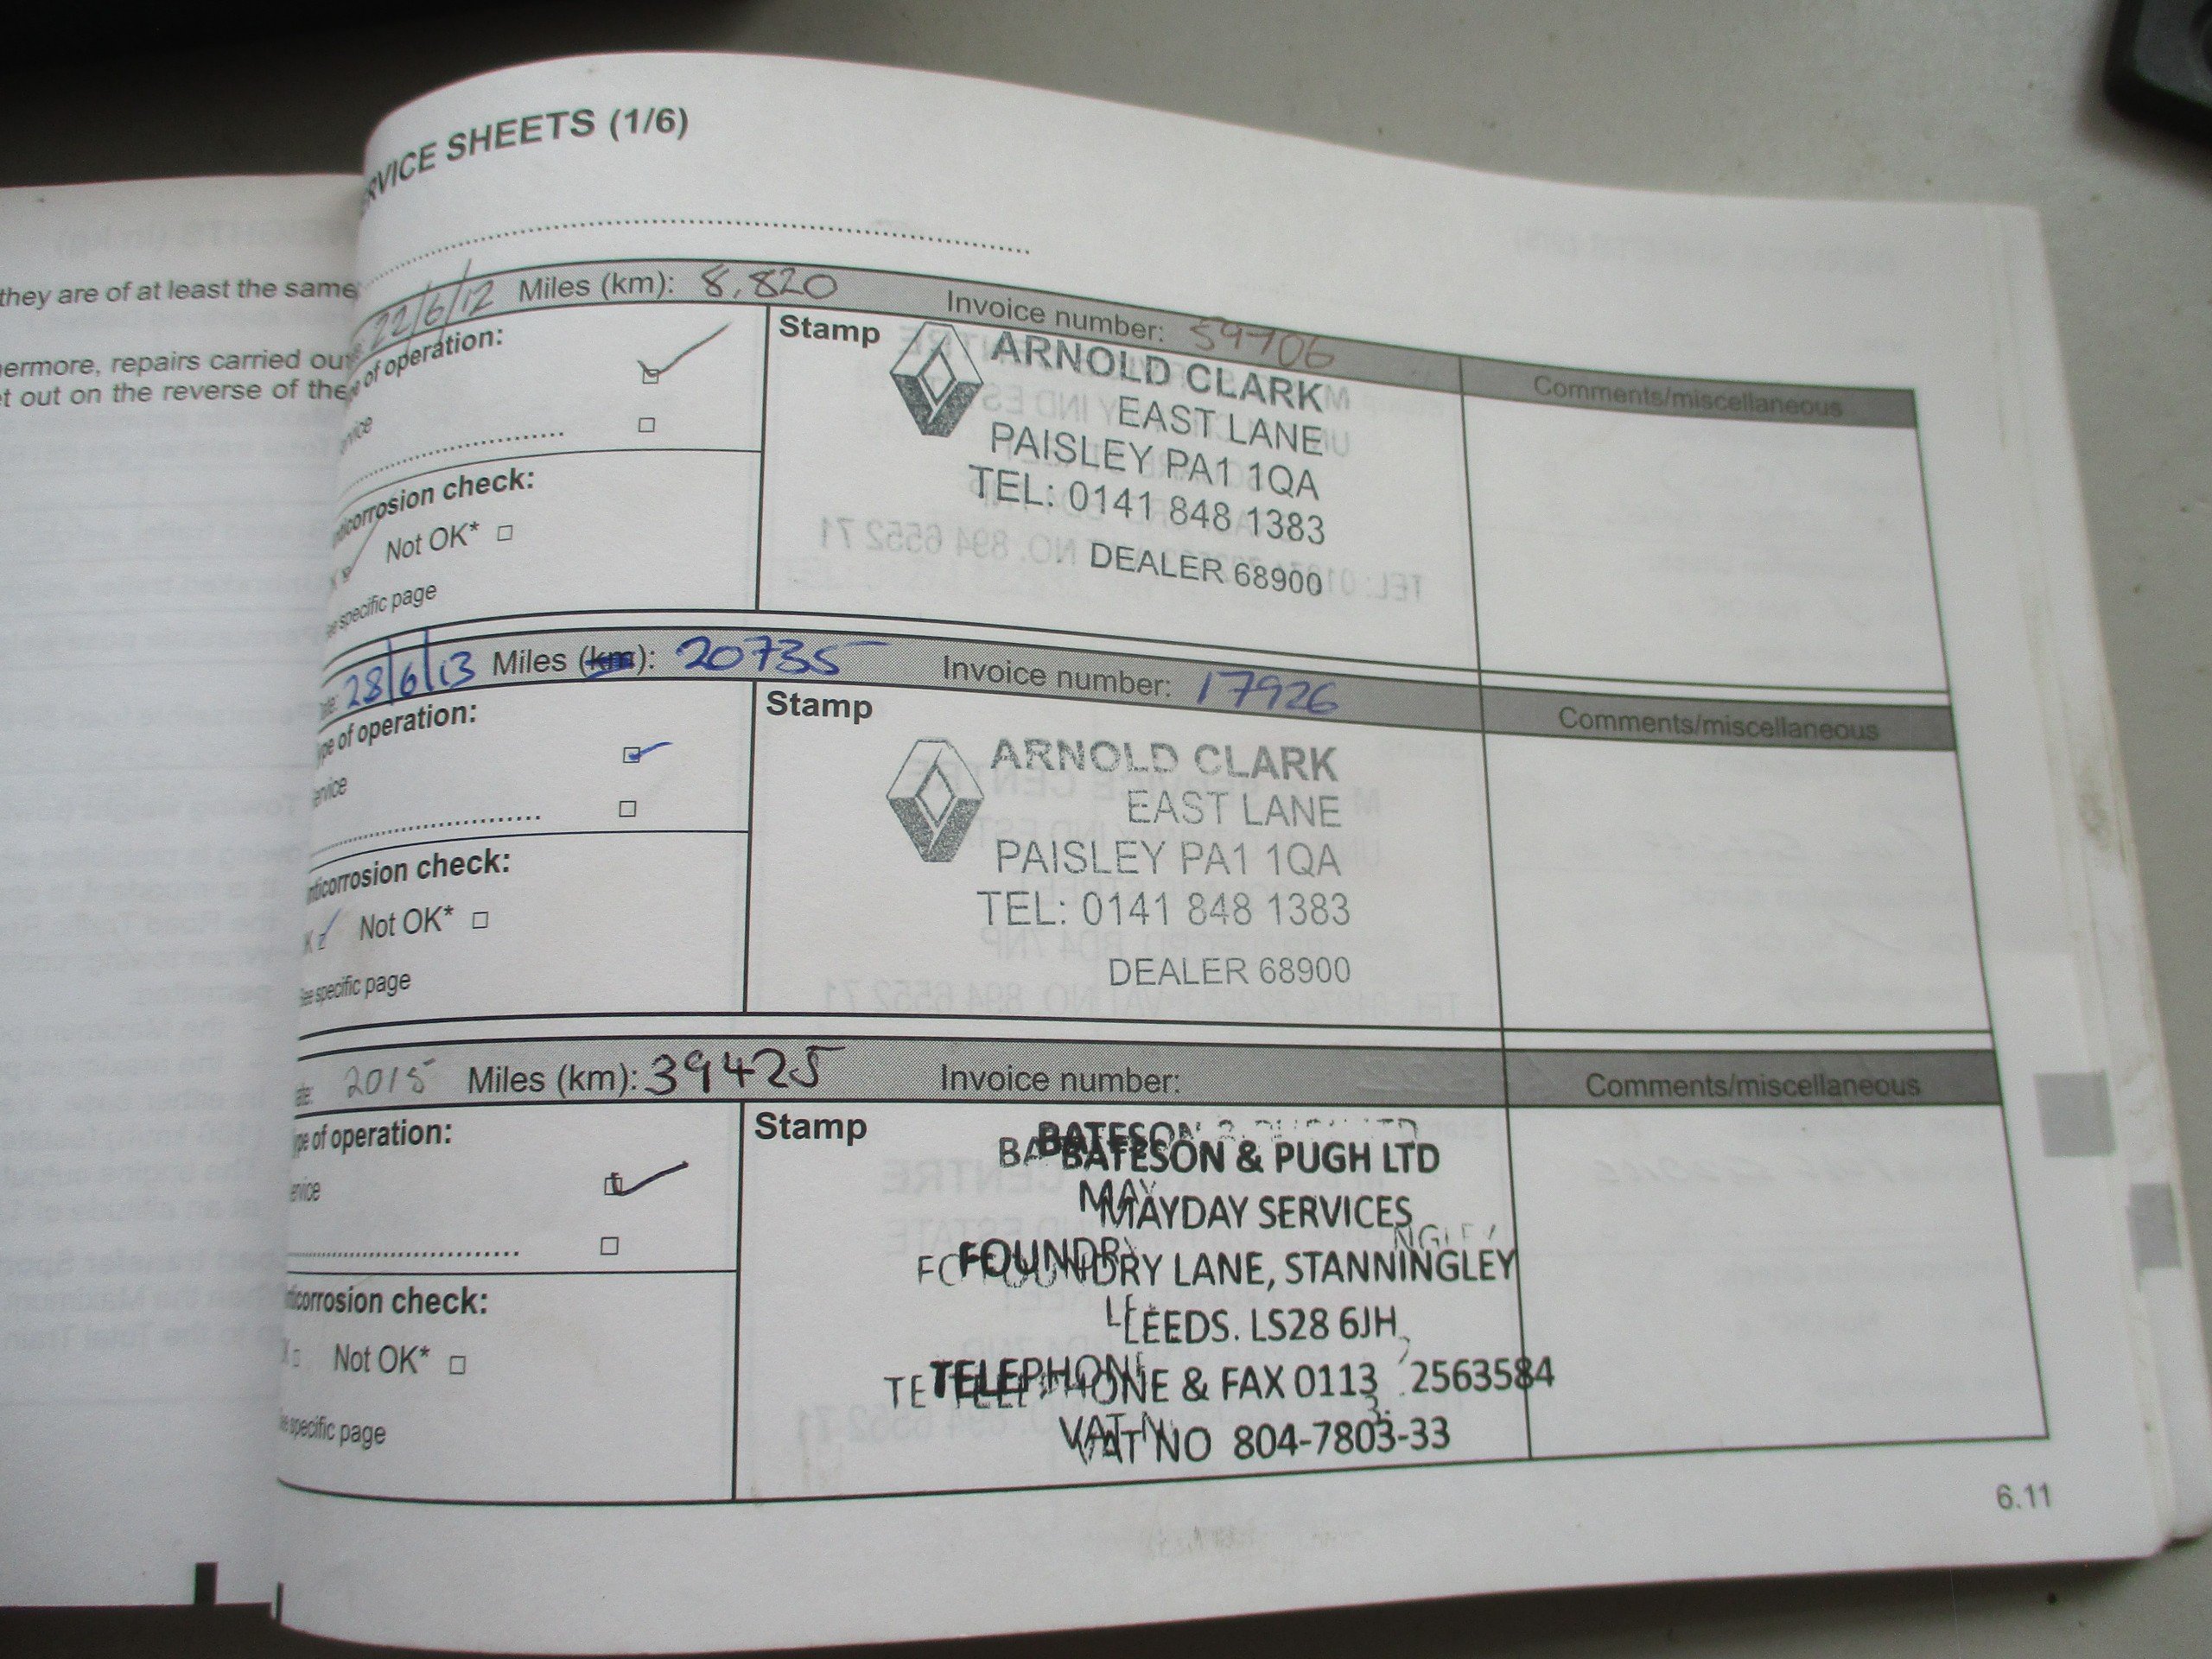 RVICE SHEETS (1/6)
they are of at least the same
ermore, repairs carried out
t out on the reverse of the
22/6/12 Miles (km): 8,820 Invoice number: 59706
of operation:
Stamp
Comments/miscellaneous
ARNOLD CLARK
EAST LANE
PAISLEY PA1 1QA
TEL: 0141 848 1383
DEALER 68900
rvice
nticorrosion check:
Not OK*
specific page
ate: 28/6/13 Miles (km): 20735 Invoice number: 17926
ype of operation:
Stamp
Comments/miscellaneous
ARNOLD CLARK
EAST LANE
PAISLEY PA1 1QA
TEL: 0141 848 1383
DEALER 68900
ervice
nticorrosion check:
K Not OK*
See specific page
ate: 2015 Miles (km): 39425 Invoice number:
ype of operation:
Stamp
Comments/miscellaneous
BATESON & PUGH LTD
MAYDAY SERVICES
FOUNDRY LANE, STANNINGLEY
LEEDS. LS28 6JH
TELEPHONE & FAX 0113 2563584
VAT NO 804-7803-33
ervice
ticorrosion check:
Not OK*
specific page
6.11